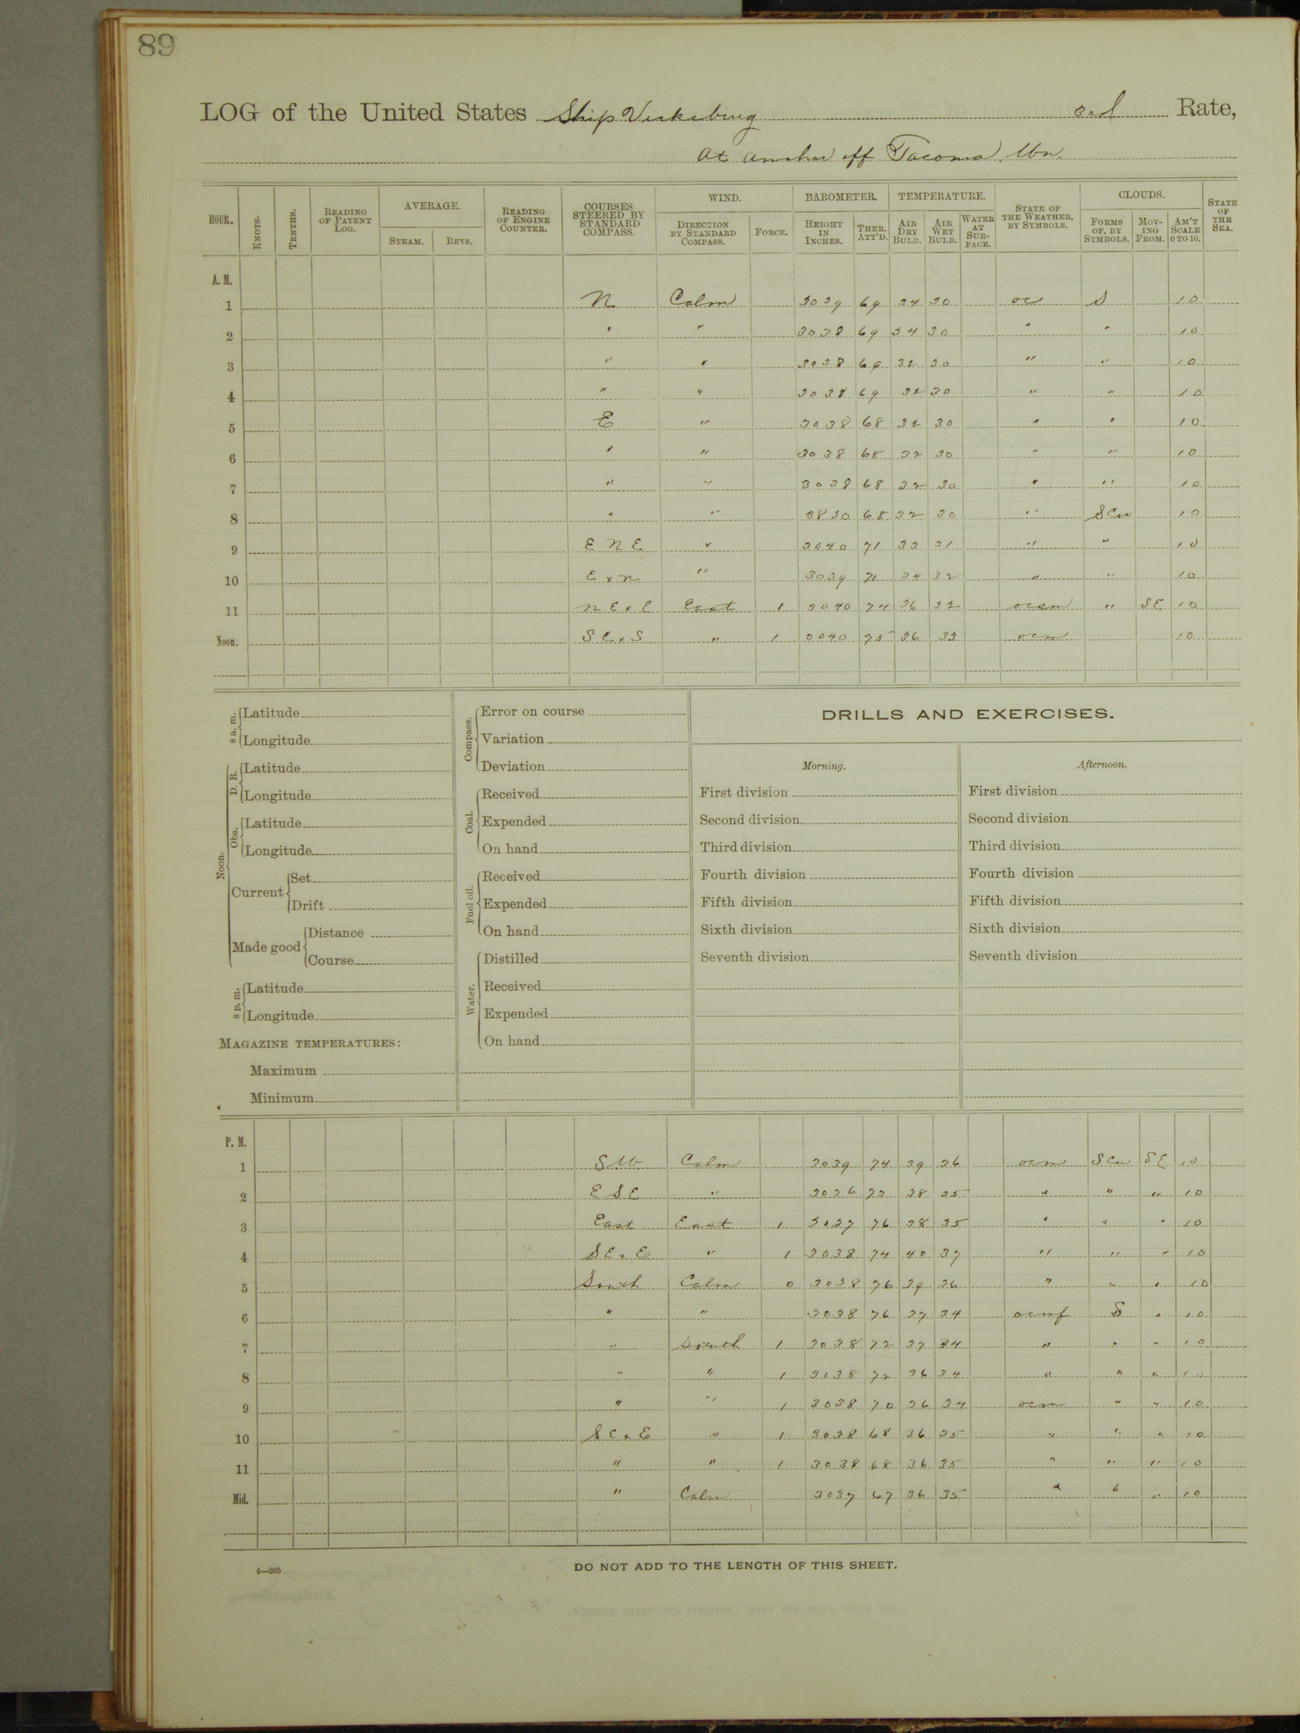 89
LOG of the United States Ship Vicksburg 3rd Rate,
At anchor off Tacoma, Wn.
HOUR. KNOTS. TENTHS. READING OF PATENT LOG. AVERAGE. STEAM. REVS. READING OF ENGINE COUNTER. COURSES STEERED BY STANDARD COMPASS. WIND. DIRECTION BY STANDARD COMPASS. FORCE. BAROMETER. HEIGHT IN INCHES. THER. ATT'D. TEMPERATURE. AIR DRY BULB. AIR WET BULB. WATER AT SURFACE. STATE OF THE WEATHER, BY SYMBOLS. CLOUDS. FORMS OF, BY SYMBOLS. MOVING FROM. AM'T SCALE 0 TO 10. STATE OF THE SEA.
A. M.
1 N Calm 3039 69 34 30 oc S 10
2 " " 3038 69 34 30 " " 10
3 " " 3038 69 32 30 " " 10
4 " " 3038 69 32 30 " " 10
5 E " 3038 68 32 30 " " 10
6 " " 3038 68 32 30 " " 10
7 " " 3038 68 32 30 " " 10
8 " " 3830 68 32 30 " SCu 10
9 E N E " 3040 71 33 31 " " 10
10 E x N " 3039 71 34 32 " " 10
11 N E x E East 1 3040 74 36 32 ocm " SE 10
Noon. S E x S " 1 3040 75 36 33 ocm 10
8 a. m. Latitude
Longitude
Noon. D. R. Latitude
Longitude
Obs. Latitude
Longitude
Current Set
Drift
Made good Distance
Course
8 p. m. Latitude
Longitude
MAGAZINE TEMPERATURES:
Maximum
Minimum
Compass. Error on course
Variation
Deviation
Coal. Received
Expended
On hand
Fuel oil. Received
Expended
On hand
Water. Distilled
Received
Expended
On hand
DRILLS AND EXERCISES.
Morning. Afternoon.
First division First division
Second division Second division
Third division Third division
Fourth division Fourth division
Fifth division Fifth division
Sixth division Sixth division
Seventh division Seventh division
P. M.
1 SW Calm 3039 74 39 36 ocm SCu SE 10
2 E S E " 3036 73 38 35 " " " 10
3 East East 1 3037 76 38 35 " " " 10
4 SE x E " 1 3038 74 40 37 " " " 10
5 South Calm 0 3038 76 39 36 " " " 10
6 " " 3038 76 37 34 ocmf S " 10
7 " South 1 3038 72 37 34 " " " 10
8 " " 1 3038 72 36 34 " " " 10
9 " " 1 3038 70 36 34 ocm " " 10
10 SE x E " 1 3038 68 36 35 " " " 10
11 " " 1 3038 68 36 35 " " " 10
Mid. " Calm 3037 67 36 35 " " " 10
4—265 DO NOT ADD TO THE LENGTH OF THIS SHEET.